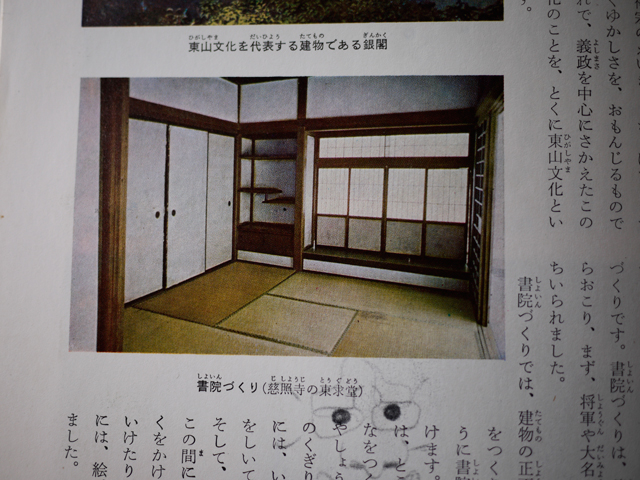 東山文化を代表する建物である銀閣
くゆかしさを、おもんじるもので
れで、義政を中心にさかえたこの
化のことを、とくに東山文化とい
す。
書院づくり(慈照寺の東求堂)
づくりです。書院づくりは、
らおこり、まず、将軍や大名
ちいられました。
書院づくりでは、建物の正
をつく
うに書
けます。
は、とこ
なをつく
やしょう
のくぎり
には、い
をしいて
そして、
この間に
くをかけ
いけたり
には、絵
ました。